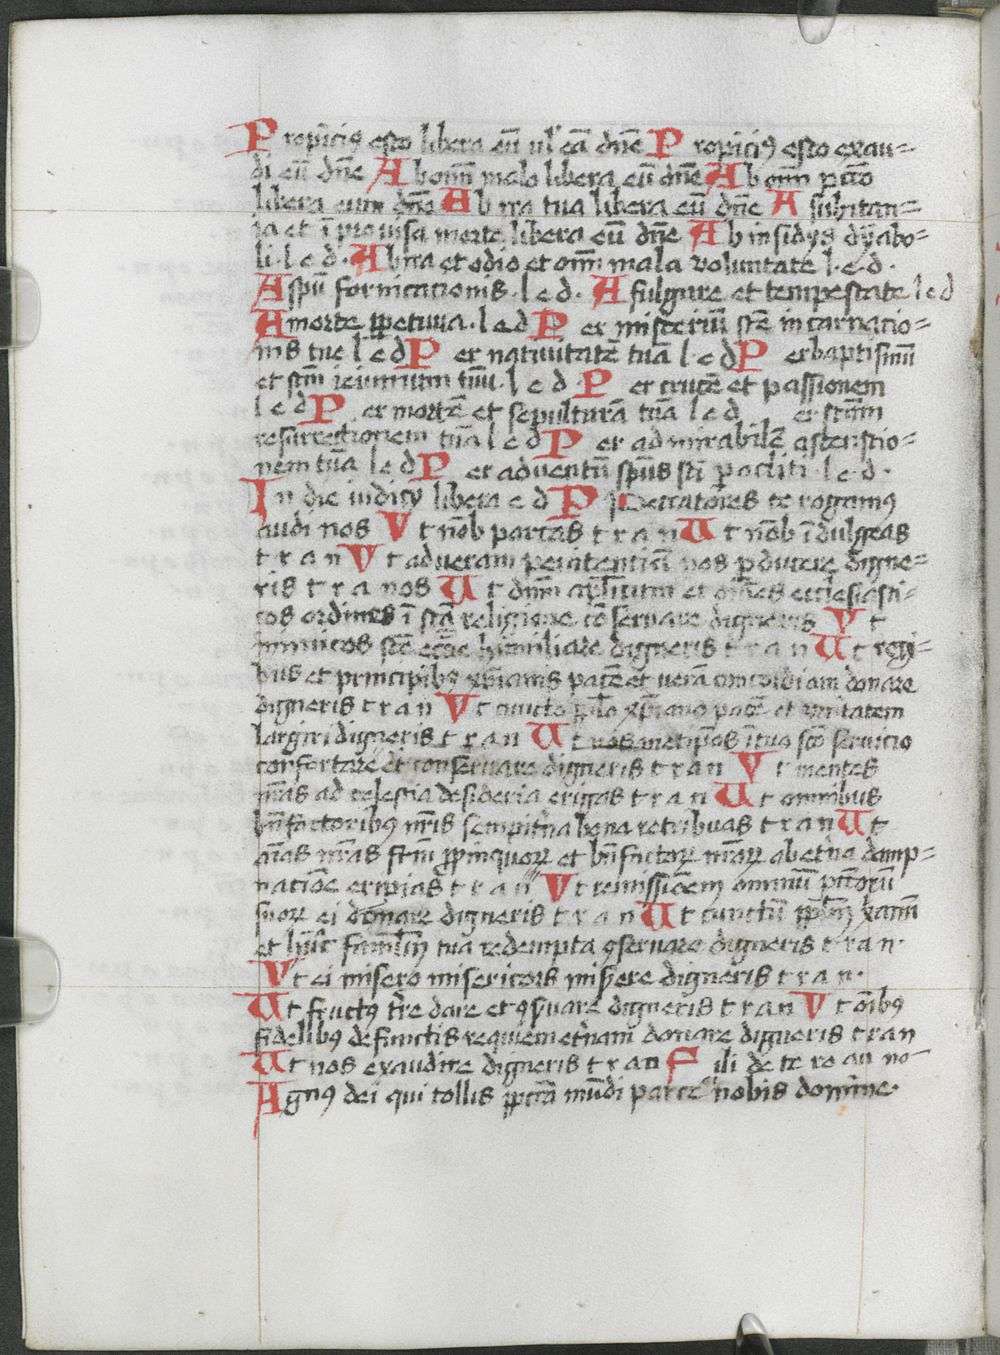 Propiciꝰ esto libera eū ul' eā dn̄e Propiciꝰ esto exau=
di eū dn̄e Ab om̄i malo libera eū dn̄e Ab om̄i pctō
libera eum dn̄e Ab ira tua libera eū dn̄e A subitan=
ia et īprovisa morte libera eū dn̄e Ab insidijs dyabo=
li · l e d · Ab ira et odio et om̄i mala voluntate l · e · d ·
A spū fornicationis · l e d · A fulgure et tempestate l e d
A morte ꝑpetua · l e d Per misteriū scē incarnatio=
nis tue l e d Per nativitatē tuā l · e d Per baptismū
et scm̄ ieiunium tuū · l e d · Per crucē et passionem
l e d Per mortē et sepulturā tuā l e d er scām
resurrectionem tuā l e d Per admirabilē ascensio=
nem tuā l e d Per adventū spūs scī ꝑacliti · l e d ·
In die iudicij libera e d P Peccatores te rogamꝰ
audi nos Ut nōb parcas t r a n Ut nōb īdulgeas
t r a n Ut ad veram penitentiā nos ꝑducere digne=
ris t r a nos Ut dn̄m aplicum et om̄es ecclesiasti=
cos ordines ī scā religione cōservare digneris Ut
inimicos scē eccīe humiliare digneris t r a n Ut regi=
bus et principibꝰ xpianis pacē et verā concordiam donare
digneris t r a n Ut cuncto pplo xpiano pacē et unitatem
largiri digneris t r a n Ut nos metipsos ī tuo scō servicio
confortare et conservare digneris t r a n Ut mentes
nr̄as ad celestia desideria erigas t r a n Ut omnibus
bn̄factoribꝰ nr̄is sempitn̄a bona retribuas t r a n Ut
aīas nr̄as frm̄ ꝓpinquoꝝ et bn̄factoꝝ nr̄oꝝ ab etn̄a damp=
natiōe eripias t r a n Ut remissiōem omniū pctōrū
suoꝝ ei donare digneris t r a n Ut cunctū pplm̄ xānm
et hūc famlm̄ tua redempta ꝯservare digneris t r a n ·
Ut ei misero misericors misere digneris t r a n ·
Ut fructꝰ tr̄e dare et ꝯservare digneris t r a n Ut oībꝰ
fidelibꝰ defunctis requiem etn̄am donare digneris t r a n
Ut nos exaudire digneris t r a n Fili dei te ro au no
Agnꝰ dei qui tollis pctā mūdi parce nobis domine ·